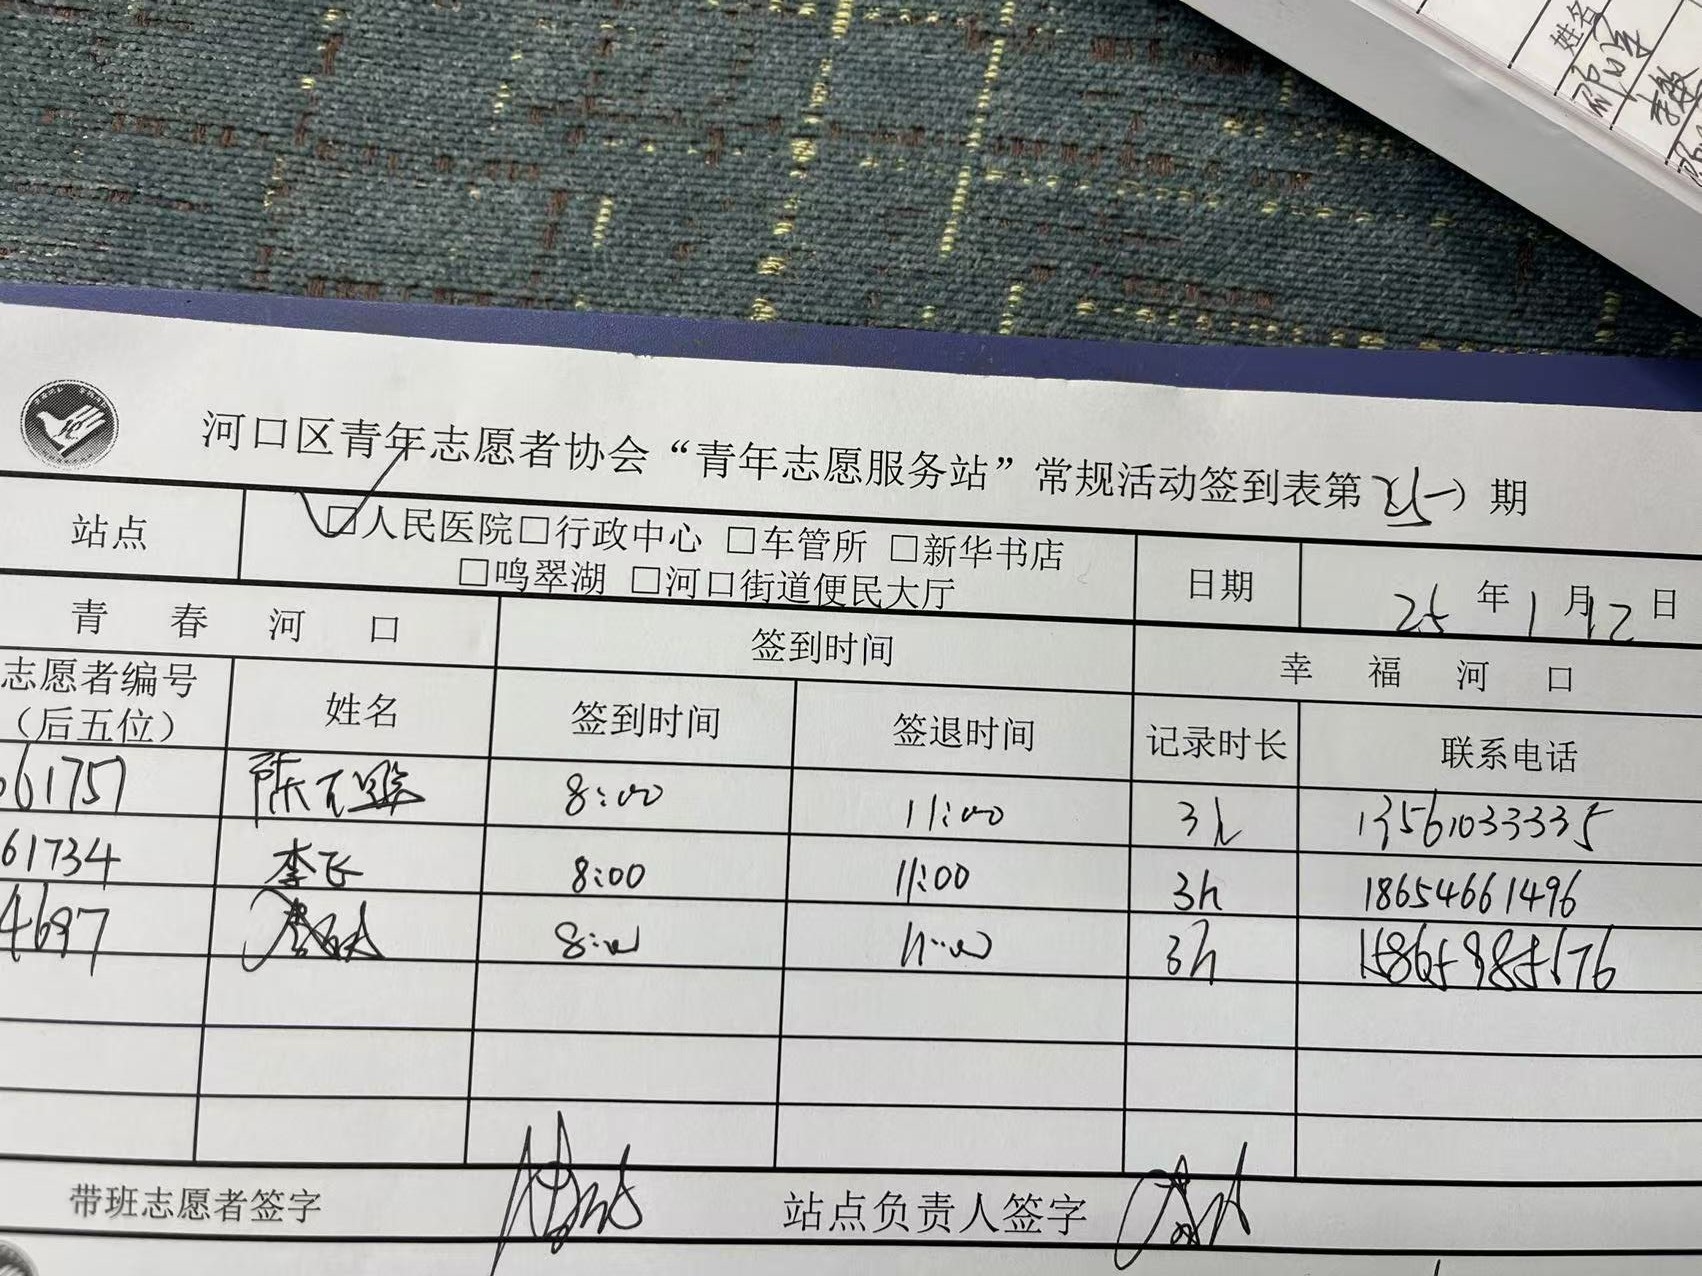 姓名
河口区青年志愿者协会“青年志愿服务站”常规活动签到表第 期
站点 □人民医院□行政中心 □车管所 □新华书店
□鸣翠湖 □河口街道便民大厅
日期 25年1月12日
青春河口 签到时间 幸福河口
志愿者编号
（后五位） 姓名 签到时间 签退时间 记录时长 联系电话
61757 陈 8:00 11:00 3h 13561033335
61734 李飞 8:00 11:00 3h 18654661496
4697 8:00 11:00 3h
带班志愿者签字 站点负责人签字